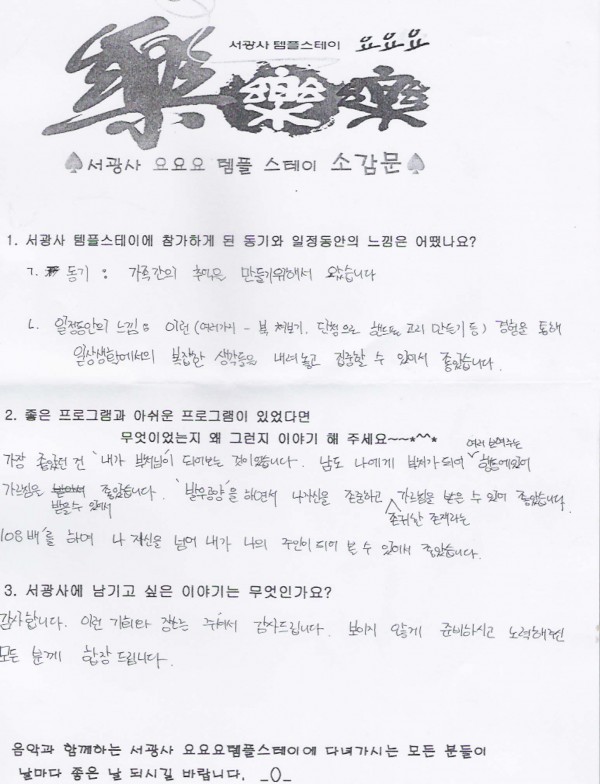 서광사 템플스테이 요요요
樂樂樂
♠서광사 요요요 템플 스테이 소감문♠
1. 서광사 템플스테이에 참가하게 된 동기와 일정동안의 느낌은 어땠나요?
ㄱ. 동기 : 가족간의 추억을 만들기위해서 왔습니다
ㄴ. 일정동안의 느낌 : 이런 (여러가지 - 북 쳐보기, 단청으로 핸드폰 고리 만들기 등) 경험을 통해
일상생활에서의 복잡한 생각들을 내려놓고 집중할 수 있어서 좋았습니다.
2. 좋은 프로그램과 아쉬운 프로그램이 있었다면
무엇이었는지 왜 그런지 이야기 해 주세요~~~*^^*
가장 좋았던 건 '내가 부처님'이 되어보는 것이었습니다. 남도 나에게 부처가 되어 보여주는 행동에 있어
가르침을 받을 수 있어서 좋았습니다. '발우공양'을 하면서 나자신을 존중하고 존귀한 존재라는 가르침을 받을 수 있어 좋았습니다.
'108배'를 하며 나 자신을 넘어 내가 나의 주인이 되어 볼 수 있어서 좋았습니다.
3. 서광사에 남기고 싶은 이야기는 무엇인가요?
감사합니다. 이런 기회와 장소를 주셔서 감사드립니다. 보이지 않게 준비하시고 노력해주신
모든 분께 합장 드립니다.
음악과 함께하는 서광사 요요요템플스테이에 다녀가시는 모든 분들이
날마다 좋은 날 되시길 바랍니다. _()_